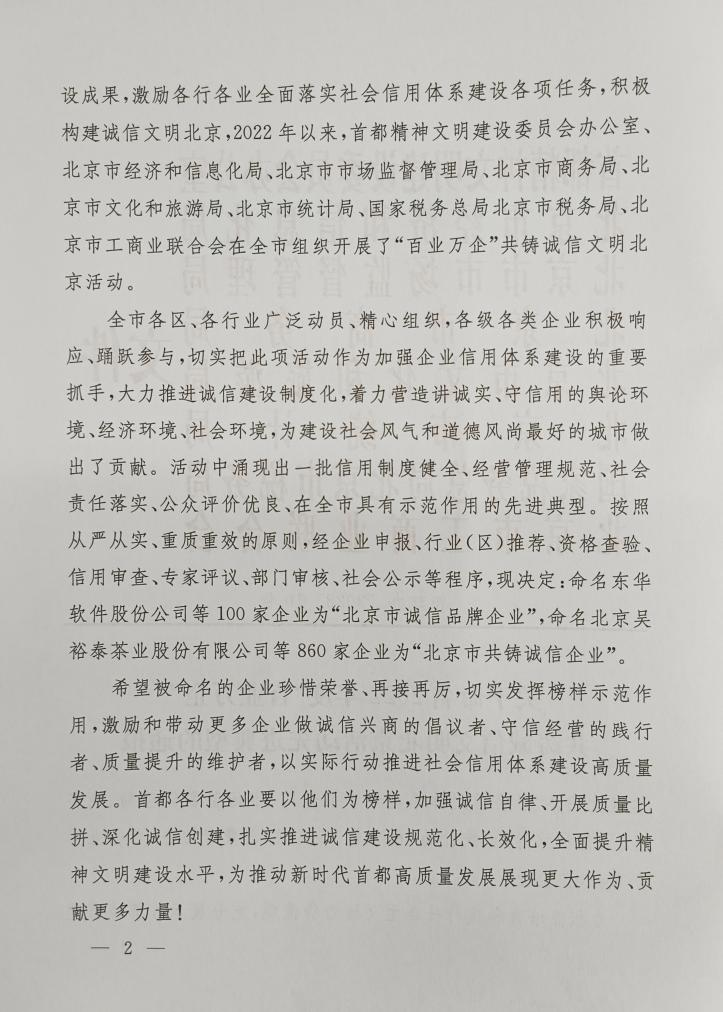 设成果,激励各行各业全面落实社会信用体系建设各项任务,积极
构建诚信文明北京,2022年以来,首都精神文明建设委员会办公室、
北京市经济和信息化局、北京市市场监督管理局、北京市商务局、北
京市文化和旅游局、北京市统计局、国家税务总局北京市税务局、北
京市工商业联合会在全市组织开展了“百业万企”共铸诚信文明北
京活动。
全市各区、各行业广泛动员、精心组织,各级各类企业积极响
应、踊跃参与,切实把此项活动作为加强企业信用体系建设的重要
抓手,大力推进诚信建设制度化,着力营造讲诚实、守信用的舆论环
境、经济环境、社会环境,为建设社会风气和道德风尚最好的城市做
出了贡献。活动中涌现出一批信用制度健全、经营管理规范、社会
责任落实、公众评价优良、在全市具有示范作用的先进典型。按照
从严从实、重质重效的原则,经企业申报、行业(区)推荐、资格查验、
信用审查、专家评议、部门审核、社会公示等程序,现决定:命名东华
软件股份公司等100家企业为“北京市诚信品牌企业”,命名北京吴
裕泰茶业股份有限公司等860家企业为“北京市共铸诚信企业”。
希望被命名的企业珍惜荣誉、再接再厉,切实发挥榜样示范作
用,激励和带动更多企业做诚信兴商的倡议者、守信经营的践行
者、质量提升的维护者,以实际行动推进社会信用体系建设高质量
发展。首都各行各业要以他们为榜样,加强诚信自律、开展质量比
拼、深化诚信创建,扎实推进诚信建设规范化、长效化,全面提升精
神文明建设水平,为推动新时代首都高质量发展展现更大作为、贡
献更多力量!
— 2 —